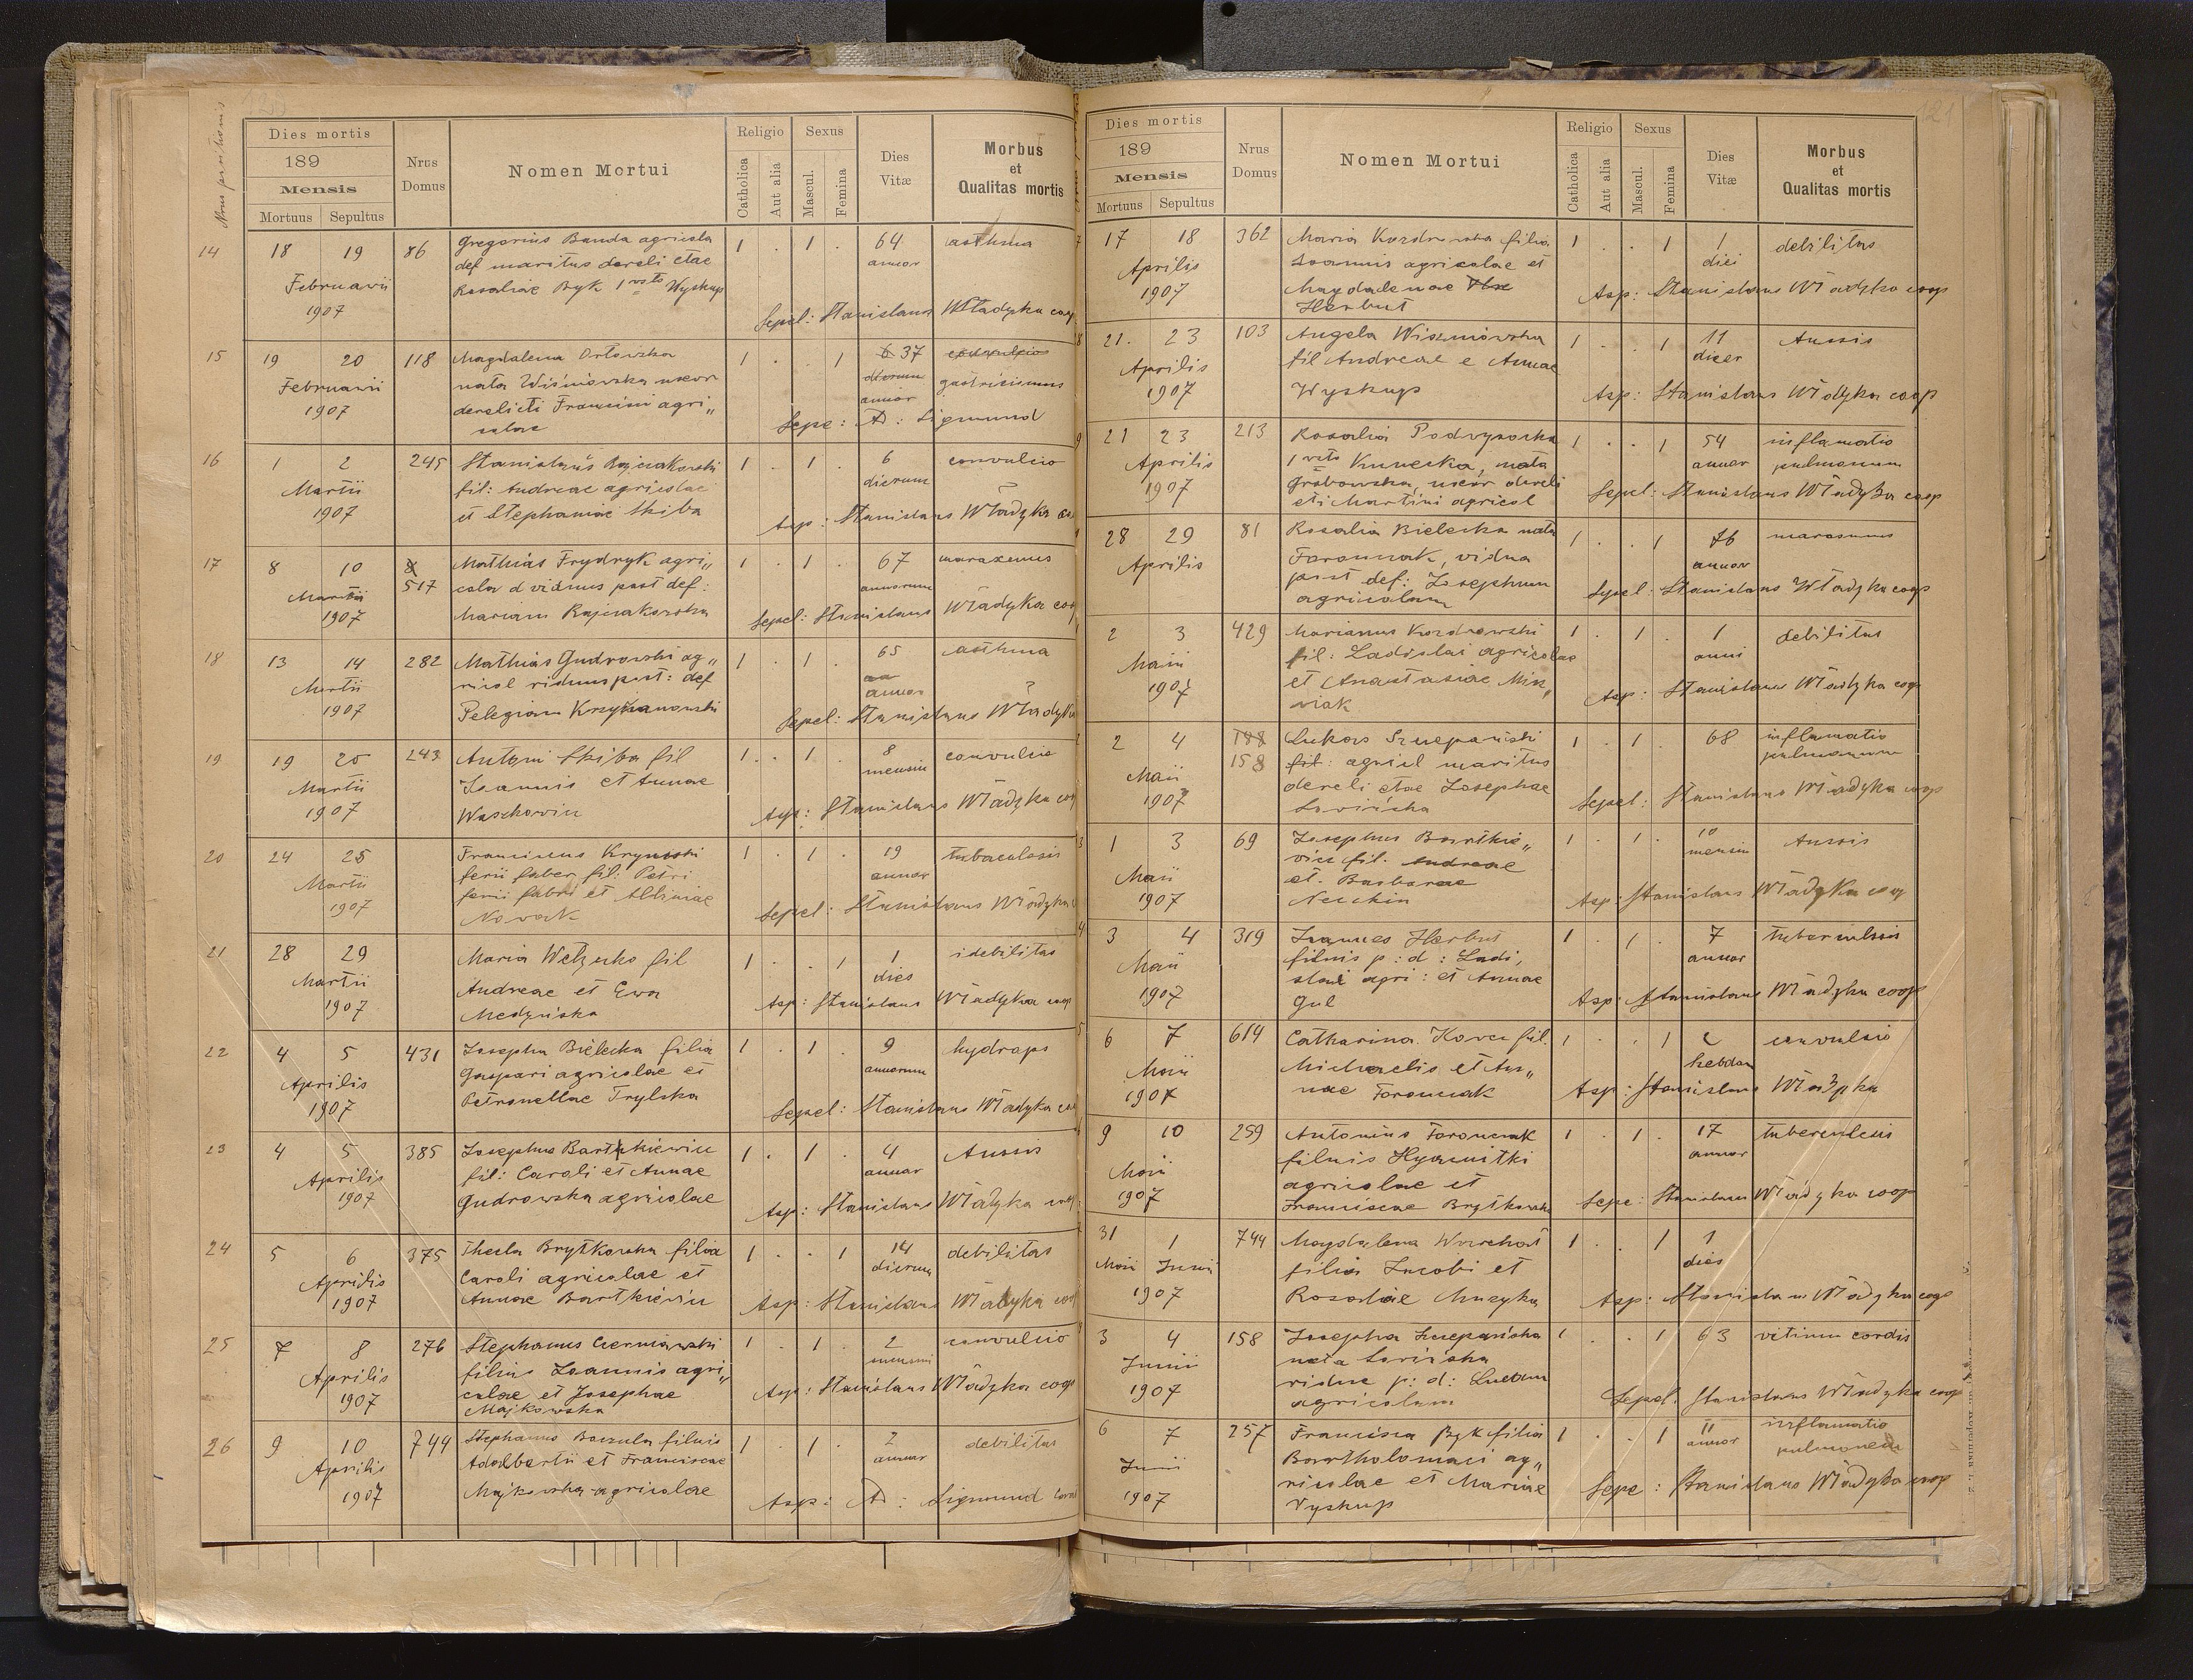 Dies mortis
189
Mensis
Mortuus Sepultus
Nrus Domus
Nomen Mortui
Religio
Catholica
Aut alia
Sexus
Mascul.
Femina
Dies Vitæ
Morbus et Qualitas mortis
14 18 19 86 Gregorius Banda agricola 1 . 1 . 64 asthma
def maritus dereli ctae annor
Februarii Rosaliae Byk 1 voto Wyskup
1907
Sepel: Stanislaus Władyka coop
15 19 20 118 Magdalena Orłowska 1 . 1 37
Februarii nata Wiśniowska uxor gastricismus
1907 derelicti Francisci agri„ annor
colae Sepe: A: Sigmund
16 1 2 245 Stanislaus Rajczakowski 1 . 1 . 6 convulcio
Martii fil: Andreae agricolae dierum
1907 et Stephaniae Skiba
Asp: Stanislaus Władyka
17 8 10 517 Mathias Frydryk agri„ 1 . 1 . 67
Martii cola viduus post def: annorum
1907 Mariam Rajczakowska
Sepel: Stanislaus Władyka
18 13 14 282 Mathias Gudrowski ag„ 1 . 1 . 65 asthma
Martii ricol viduus post: def annor
1907 Pelegiam
Sepel: Stanislaus Władyka
19 19 20 243 Antoni Skiba fil 1 . 1 . 8 convulcio
Martii Ioannis et Annae mensiu
1907
Asp: Stanislaus Władyka coop
20 24 25 Franciscus 1 . 1 . 19
Martii ferii faber fil: Petri annor
1907 ferii fabri et
Nowak
Sepel: Stanislaus Władyka
21 28 29 Maria fil 1 . . 1 1
Martii Andreae et Ewa dies
1907 Medyńska
Asp: Stanislaus Władyka coop
22 4 5 431 Josepha Bielecka filia 1 . 1 . 9 hydrops
Aprilis Gaspari agricolae et annorum
1907 Petronellae Trylska
Sepel: Stanislaus Władyka
23 4 5 385 Josephus Bartkiewicz 1 . 1 . 4 Tussis
Aprilis fil: Caroli et Annae annor
1907 Gudrowska agricolae
Asp: Stanislaus Władyka
24 5 6 375 Thecla Brytkowska filia 1 . . 1 14 debilitas
Aprilis Caroli agricolae et dierum
1907 Annae Bartkiewicz
Asp: Stanislaus Władyka
25 7 8 276 Stephanus Czerniawski 1 . 1 . 2 convulcio
Aprilis filius Ioannis agri„
1907 colae et Josephae
Majkowska
Asp: Stanislaus Władyka coop
26 9 10 744 Stephanus filius 1 . 1 . 2 debilitas
Aprilis Adalbertii et Franciscae annor
1907 Majkowska agricolae
Asp: A: Sigmund
Dies mortis
189
Mensis
Mortuus Sepultus
Nrus Domus
Nomen Mortui
Religio
Catholica
Aut alia
Sexus
Mascul.
Femina
Dies Vitæ
Morbus et Qualitas mortis
17 18 362 Maria Kozdrowska filia 1 . . 1 1 debilitas
Aprilis Ioannis agricolae et diei
1907 Magdalenae
Herbut
Asp: Stanislaus Władyka coop
21. 23 103 Angela Wiszniówska 1 . . 1 11 Tussis
Aprilis fil Andreae e Annae dier
1907 Wyskup
Asp: Stanislaus Władyka coop
21 23 213 Rosalia Podwysocka 1 . . 1 54 inflamatio
Aprilis 1 voto Kunecka, nata annor pulmonum
1907 Grabowska, uxor dereli
cti Martini agricol
Sepel: Stanislaus Władyka coop
28 29 81 Rosalia Bielecka nata 1 . . 1 76 marasmus
Aprilis Faronczak, vidua annor
post def: Josephum
agricolam
Sepel: Stanislaus Władyka coop
2 3 429 Marianus Kozdrowski 1 . 1 . 1 debilitas
Maii fil: Ladislai agricolae anni
1907 et Anastasiae
Asp: Stanislaus Władyka coop
2 4 188 Lukas Szczepański 1 . 1 . 68 inflamatio
158 fil: agricl maritus pulmonum
Maii dereli ctae Josephae
1907
Sepel: Stanislaus Władyka coop
1 3 69 Josephus Bartkie„ 1 . 1 . 10 Tussis
Maii vicz fil. Andreae mensiu
1907 et. Barbarae
Asp: Stanislaus Władyka coop
3 4 319 Ioannes Herbut 1 . 1 . 7
Maii filius p: d: Ladi, annor
1907 slai agri: et Annae
Gul
Asp: Stanislaus Władyka coop
6 7 614 Catharina fil. 1 . . 1 convulsio
Maii Michaelis et An„ hebdom
1907 nae Faronczak
Asp: Stanislaus Władyka
9 10 259 Antonius Faronczak 1 . 1 . 17
Maii filius annor
1907 agricolae et
Franciscae Brytkowska
Sepe: Stanislaus Władyka coop
31 1 744 Magdalena Warchoł 1 . . 1 1
Maii Junii filia Iacobi et dies
1907 Rosaliae Muzyka
Asp: Stanislaus Władyka coop
3 4 158 Josepha Szczepańska 1 . . 1 63 vitium cordis
Junii nata
1907 vidua p: d: Lucam
agricolam
Sepel. Stanislaus Władyka coop
6 7 257 Francisca Byk filia 1 . . 1 11 inflamatio
Junii Bartholomaei ag„ annor
1907 ricolae et Mariae
Wyskup
Sepe: Stanislaus Władyka coop